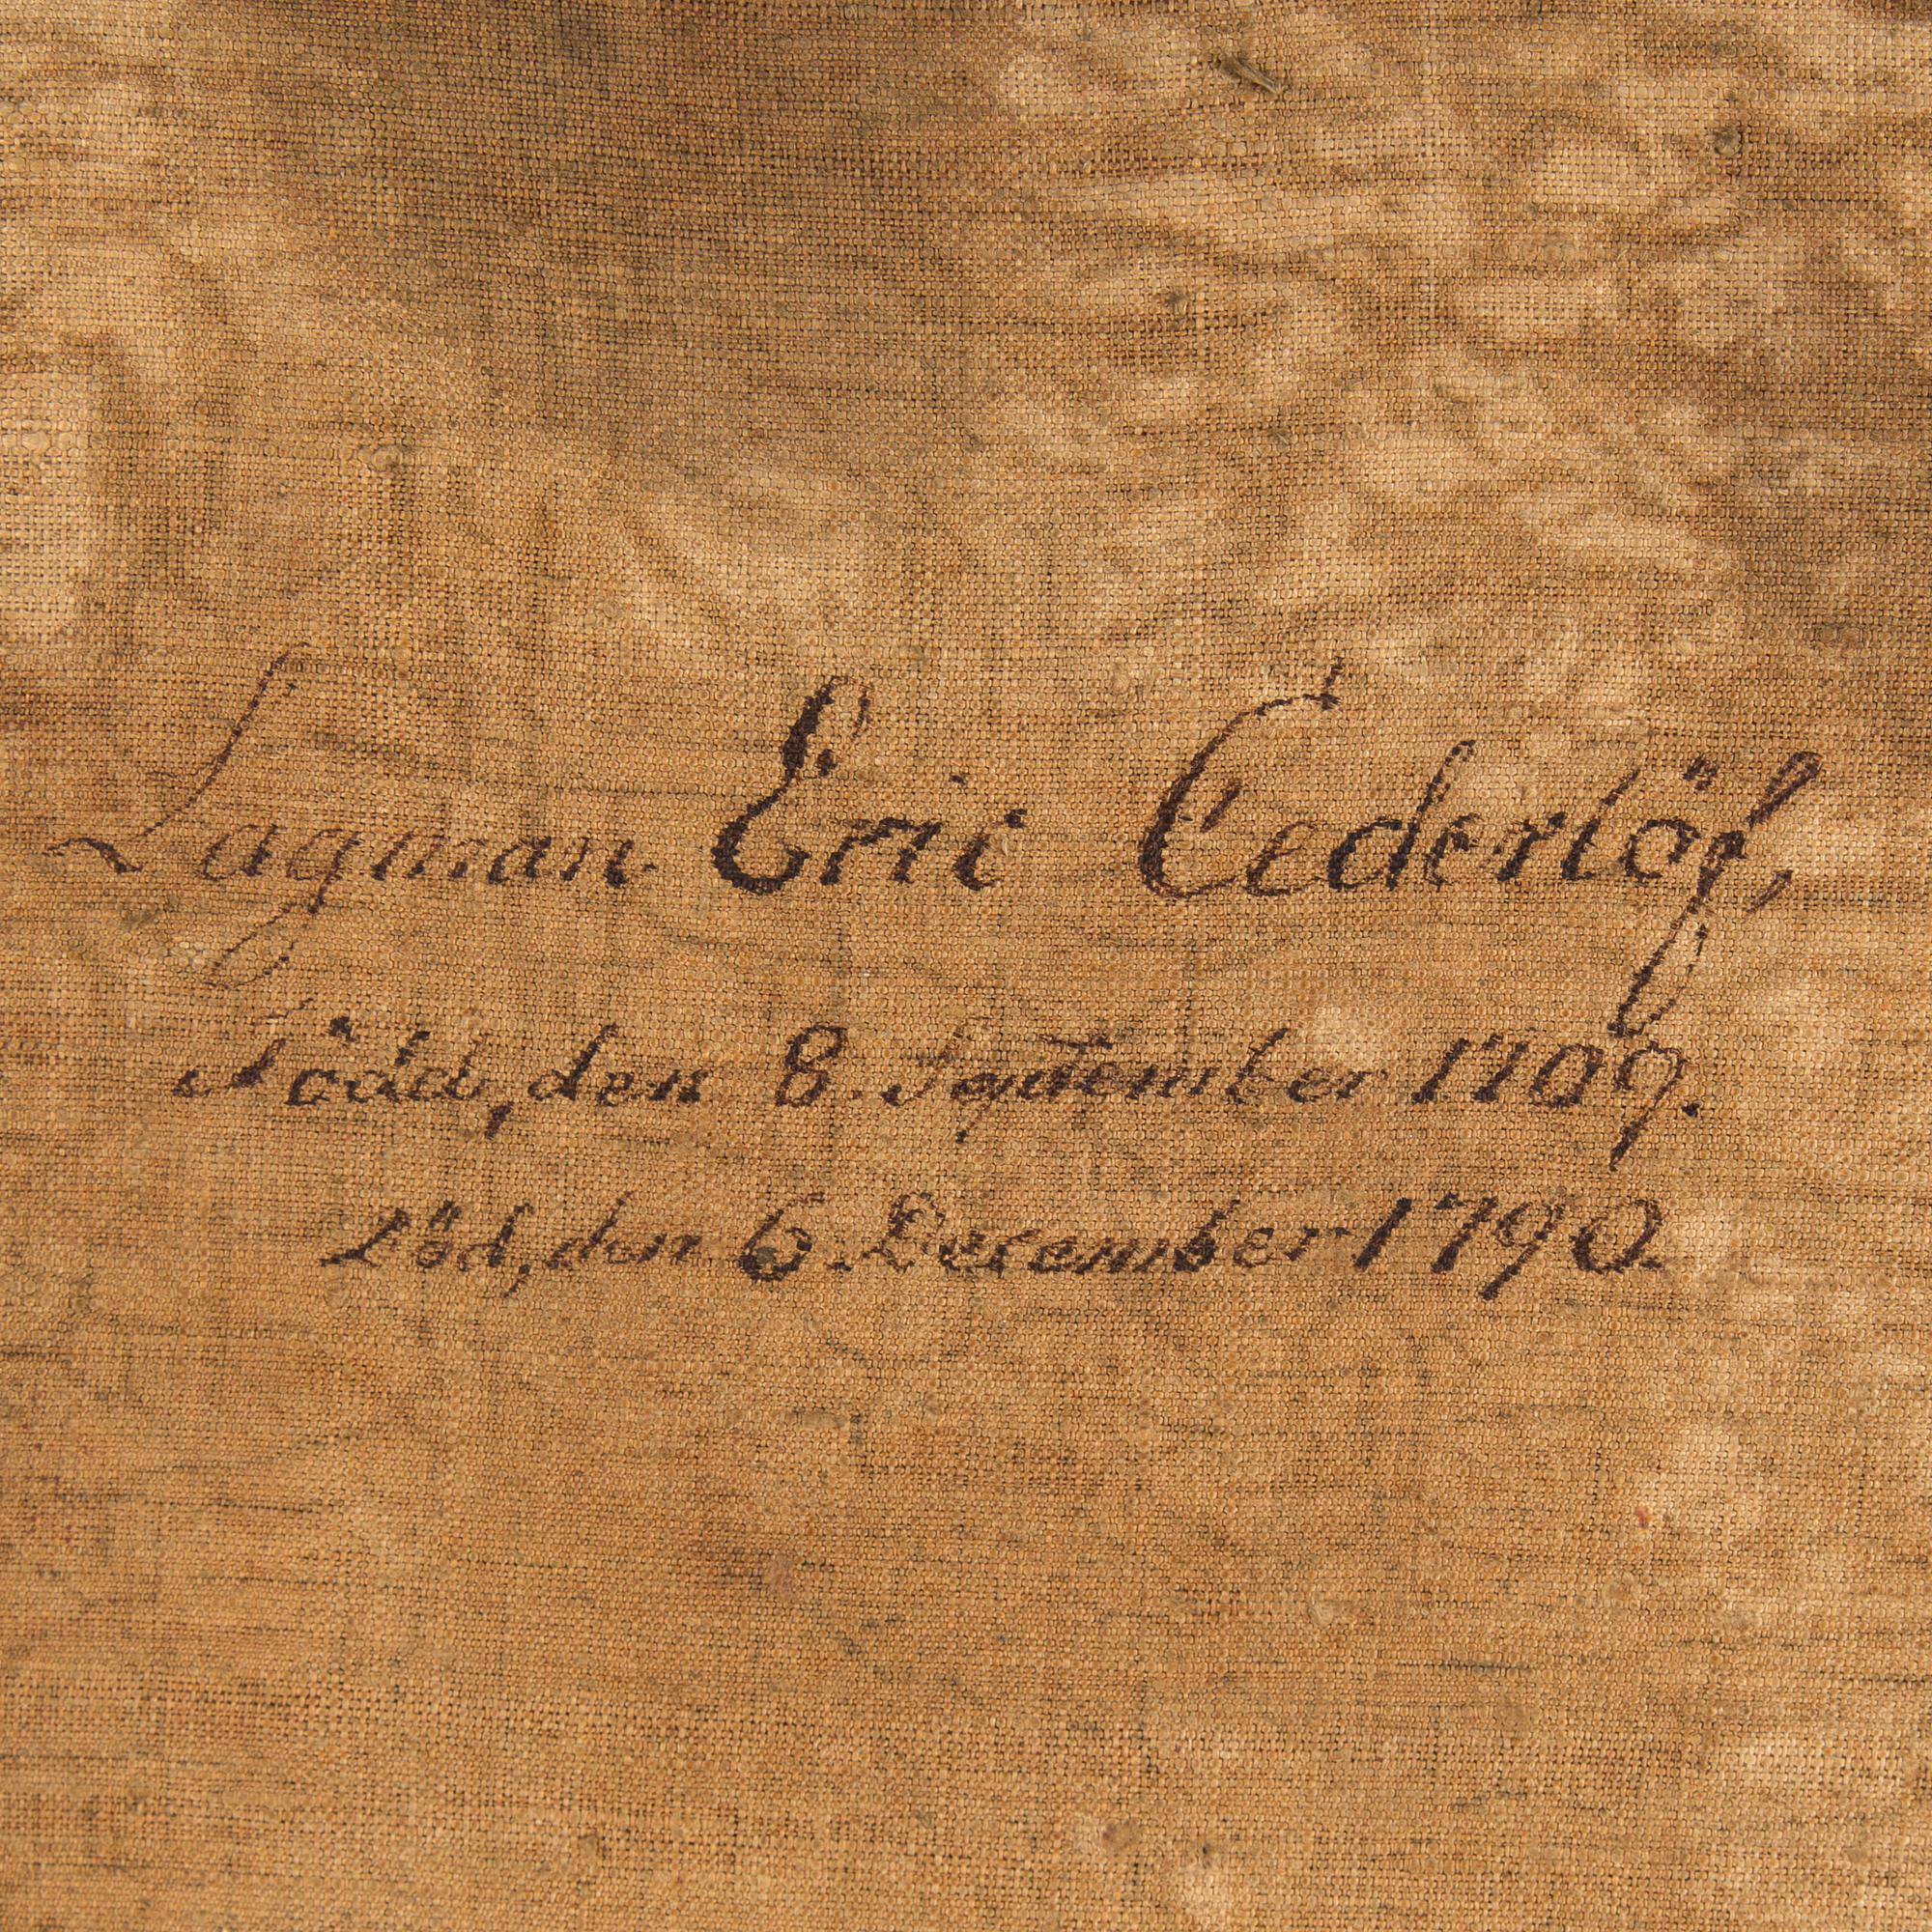 Lagman Eric Cederlöf,
Född, den 8. September 1709.
Död, den 6. December 1790.